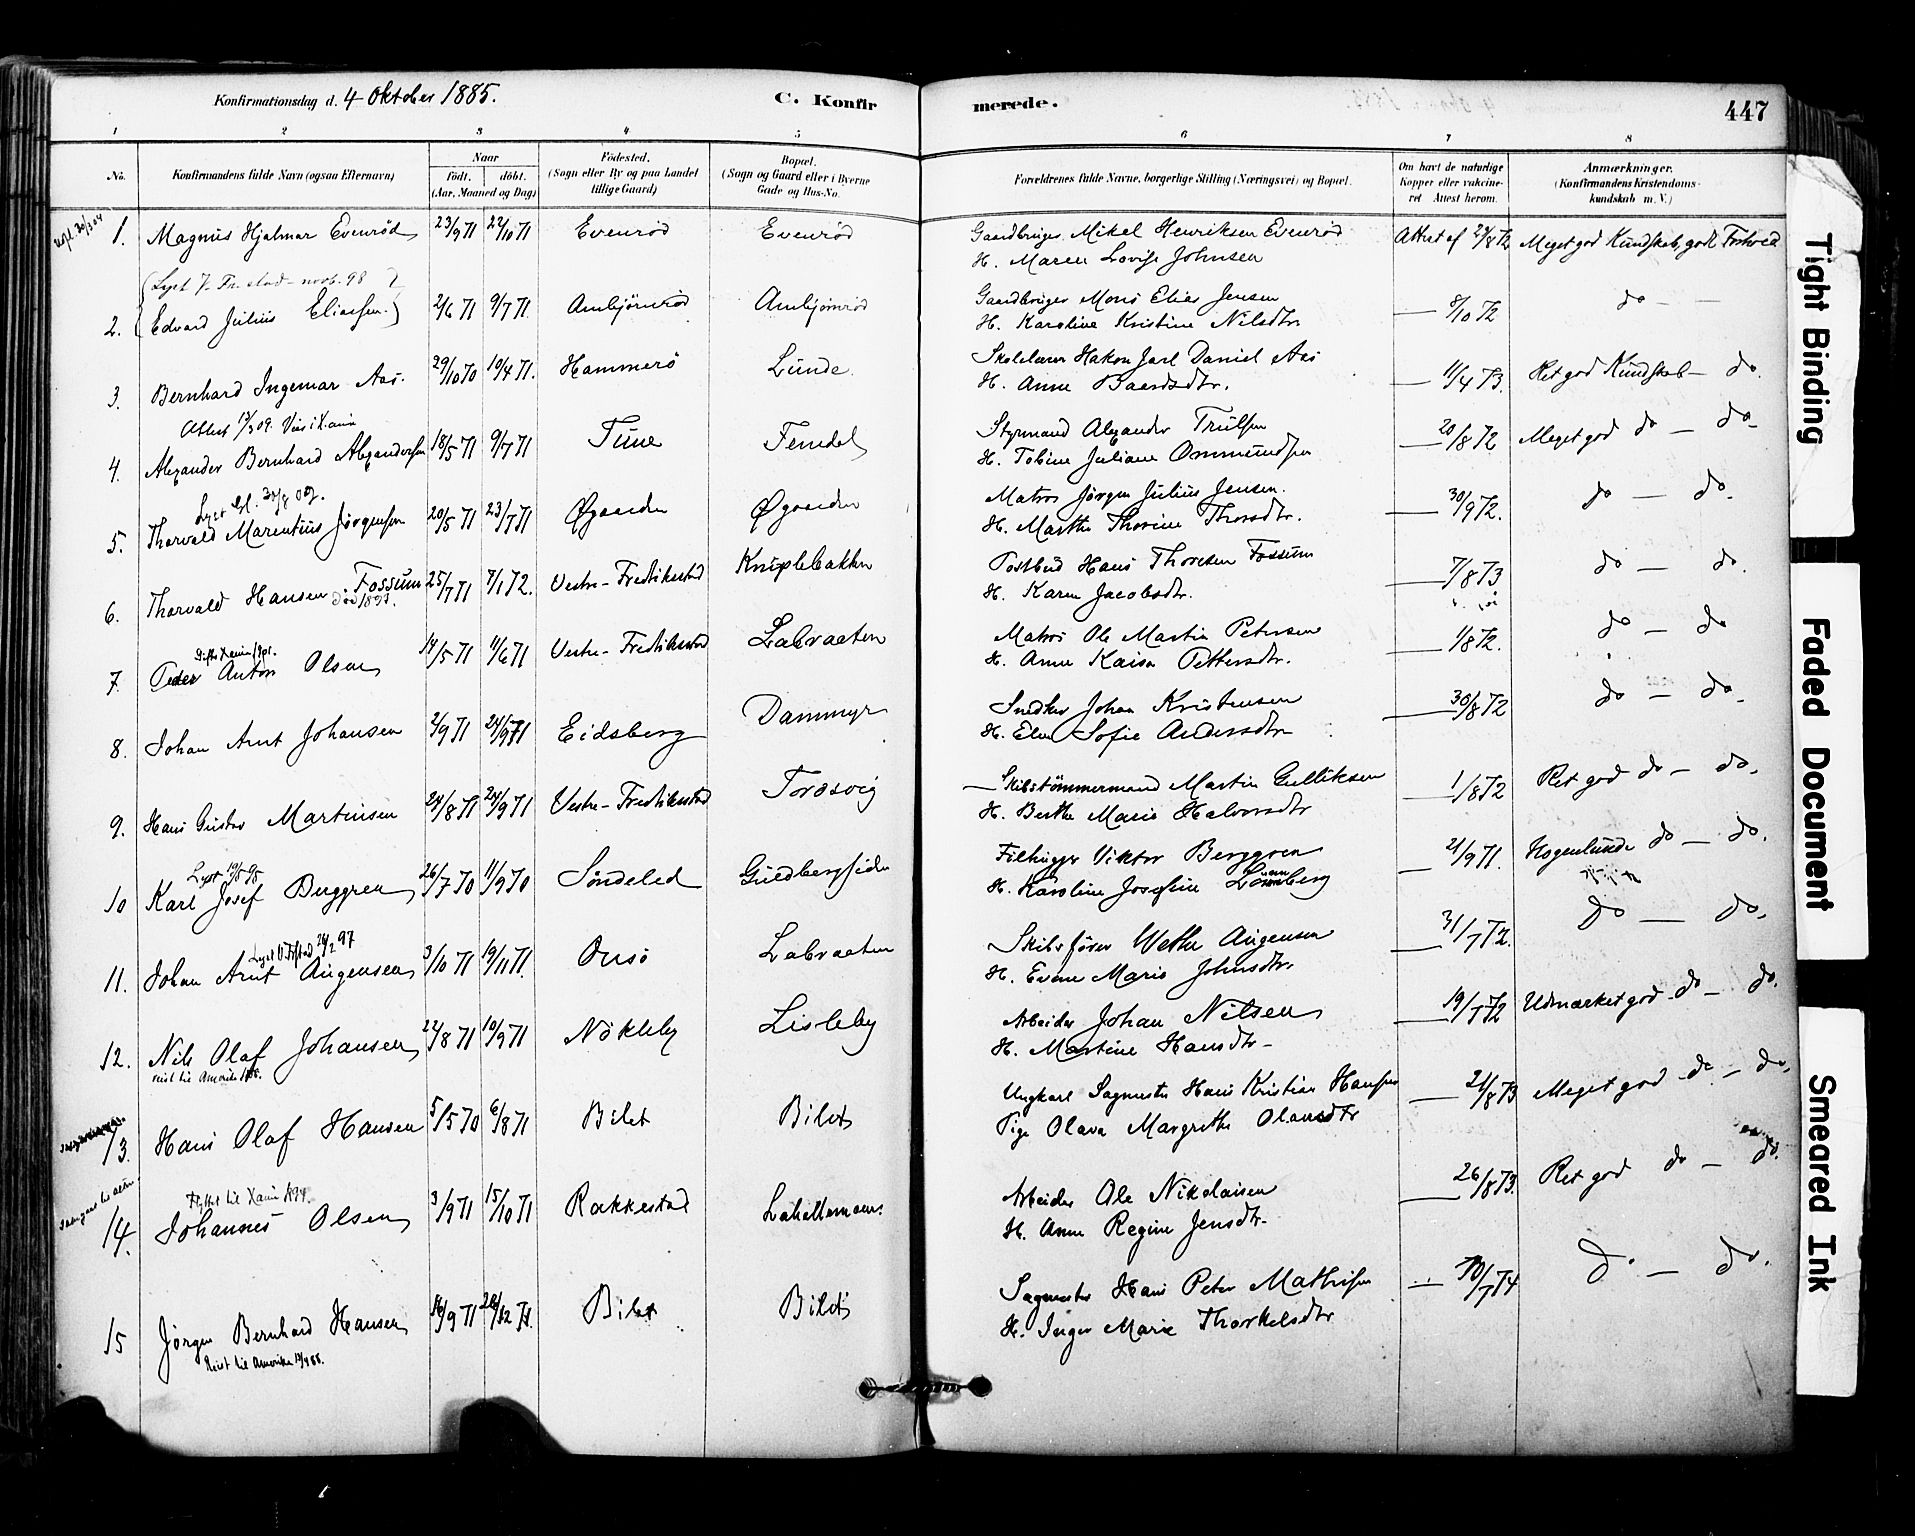 Konfirmationsdag d. 4 Oktober 1885. C. Konfirmerede. 447
1 2 3 4 5 6 7 8
No. Konfirmandens fulde Navn (ogsaa Efternavn) Naar födt. döbt. (Aar, Maaned og Dag) Födested. (Sogn eller By og paa Landet tillige Gaard) Bopæl. (Sogn og Gaard eller i Byerne Gade og Hus-No. Forældrenes fulde Navne, borgerlige Stilling (Næringsvei) og Bopæl. Om havt de naturlige Kopper eller vakcineret Attest herom. Anmærkninger. (Konfirmandens Kristendomskundskab m. V.)
1. Magnus Hjalmar Evenröd 23/9 71 22/10 71 Evenröd Evenröd Gaardbruger Mikal Henriksen Evenröd Attest af 27/8 72 Meget god Kundskab, godt Forhold
H. Maren Lovise Johnsen
Lyst F. Fr.stad novb. 98
2. Edvard Julius Eliassen 2/6 71 9/7 71 Ambjörnröd Ambjörnröd Gaardbruger Mons Elias Jensen — 8/10 72 do —
H. Karoline Kristine Nilsdtr
3. Bernhard Ingemar Aas. 29/10 70 10/4 71. Hammerö Lunde Skolelærer Hakon Jarl Daniel Aas — 11/4 73. Ret god Kundskab — do
H. Anne Baardsdtr.
Attest 13/3 09.
4. Alexander Bernhard Alexandersen 18/5 71 9/7 71 Tune Femdal Styrmand Alexander Trulsen — 20/8 72 Meget god do — do
H. Tobine Juliane Ommundsen
5. Thorvald Marentius Jörgensen 20/5 71 23/7 71 Øgaarden Øgaarden Matros Jörgen Julius Jensen. — 30/9 72. do — do.
H. Marthe Thorine Thorsdtr.
6. Thorvald Hansen Fossum 25/7 71 7/1 72. Vestre-Fredrikstad Kniplebakken Postbud Hans Thoresen Fossum — 7/8 73 do — do.
död 1897.
H. Karen Jacobsdtr.
7. Peder Anton Olsen 14/5 71 11/6 71 Vestre-Fredrikstad Labraaten Matros Ole Martin Petersen — 1/8 72. do — do
H. Anne Kaisa Pettersdtr.
8. Johan Arnt Johansen 2/9 71 24/9 71 Eidsberg Dammyr Snedker Johan Kristensen — 30/8 72 do — do
H. Elen Sofie Andersdtr
9. Hans Gustav Martinsen 24/8 71 24/9 71 Vestre-Fredrikstad Torsvig Skibstömmermand Martin Gulliksen — 1/8 72 Ret god do — do.
H. Berthe Marie Halvorsdtr
Lyst 19/5 95
10 Karl Josef Berggren 26/7 70 11/9 70 Söndeled Guldbergsiden Filhugger Viktor Berggren — 21/9 71. Nogenlunde do — do.
H. Karoline Josefine Lönnberg
11. Johan Arnt Augensen 3/10 71 19/11 71. Onsö Labraaten Skibsförer Wethe Augensen — 31/7 72. do — do.
H. Evine Marie Johnsdtr.
12. Nils Olaf Johansen 22/8 71 10/9 71 Nökleby Lisleby Arbeider Johan Nilsen — 19/7 72 Udmærket god do — do.
H. Martine Hansdtr —
13. Hans Olaf Hansen 5/5 70 6/8 71 Bilet Bilet Ungkarl Sagmester Hans Kristian Hansen — 21/8 73 Meget god do — do.
Pige Olava Margrethe Olausdtr
Flyttet til Xania 1894.
14. Johannes Olsen 3/9 71 15/10 71 Rakkestad Lahellemoen. Arbeider Ole Nikolaisen — 26/8 73. Ret god do — do.
H. Anne Regine Jensdtr.
15 Jörgen Bernhard Hansen 16/9 71 26/12 71. Bilet Bilet Sagmester Hans Peter Mathisen — 10/7 74 do — do.
Reist til Amerika 13/4 88.
H. Inger Marie Thorkelsdtr
Tight Binding
Faded Document
Smeared Ink